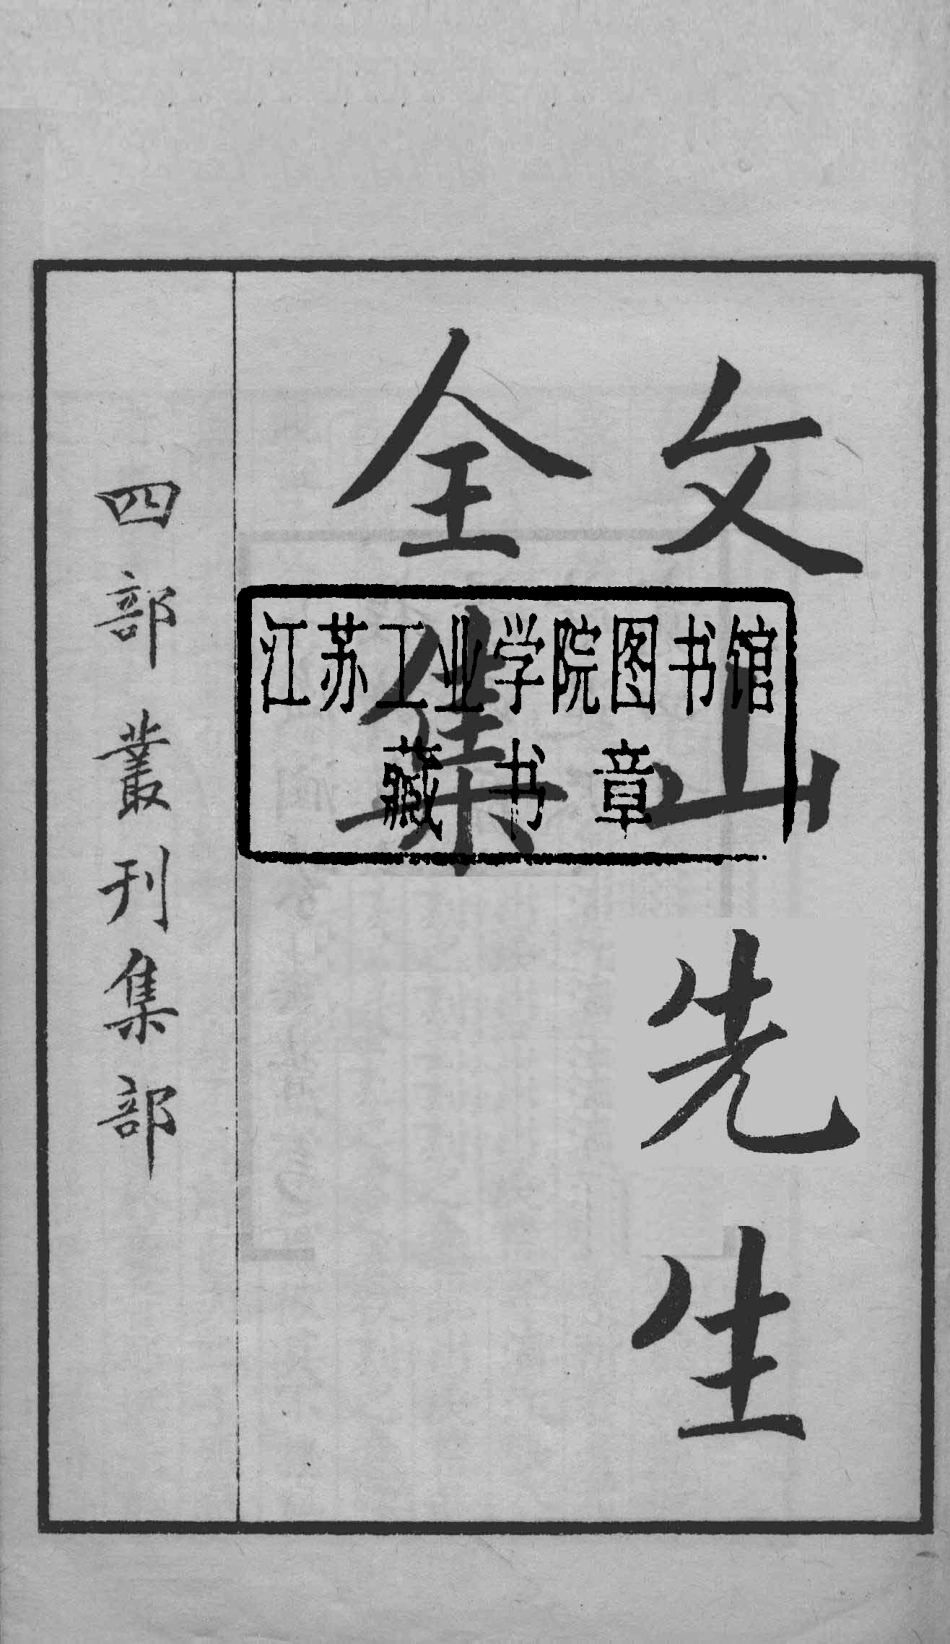 文山先生
全集
四部叢刊集部
江苏工业学院图书馆
藏书章